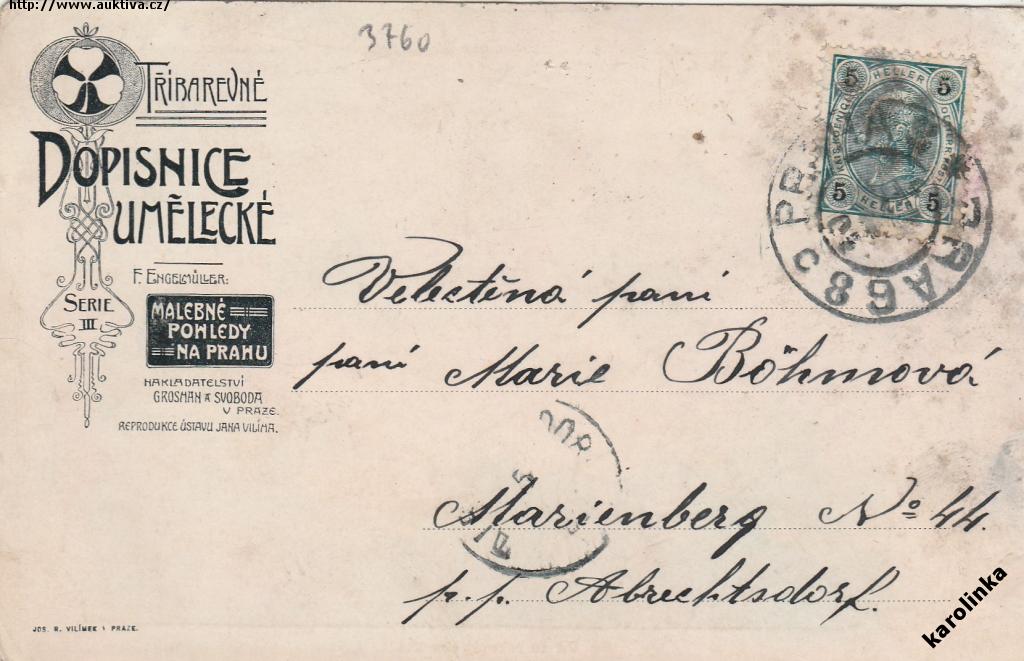 http://www.auktiva.cz/
3760
TŘÍBAREVNÉ
DOPISNICE
UMĚLECKÉ
F. ENGELMÜLLER:
SERIE
III
MALEBNÉ
POHLEDY
NA PRAHU
NAKLADATELSTVÍ
GROSMAN A SVOBODA
V PRAZE.
REPRODUKCE ÚSTAVU JANA VILÍMA.
5 HELLER 5
5 HELLER 5
PRAG 8 c
Velectěná paní
paní Marie Böhmová
Marienberg No 44.
p.p. Abrechtsdorf.
JOS. R. VILÍMEK V PRAZE.
karolinka